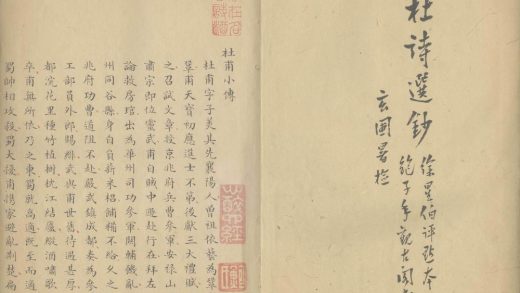 杜詩選鈔
徐星伯評點本
鮑子年觀古閣
玄圃署檢
杜甫小傳
杜甫字子美其先襄陽人曾祖依藝為鞏
鞏甫天寶初應進士不第後獻三大禮賦
之召試文章授京兆府兵曹參軍安祿山
肅宗即位靈武甫自賊中遯赴行在拜左
論救房琯出為華州司功參軍關輔饑亂
州同谷縣身自負薪采梠餔糒不給久之
兆府功曹道阻不赴嚴武鎮成都奏為參
工部員外郎賜緋武與甫世舊待遇甚厚
都浣花里種竹植樹枕江結廬縱酒嘯歌
卒甫無所依乃之東蜀就高適既至而適
蜀帥相攻殺蜀大擾甫攜家避亂荊楚扁